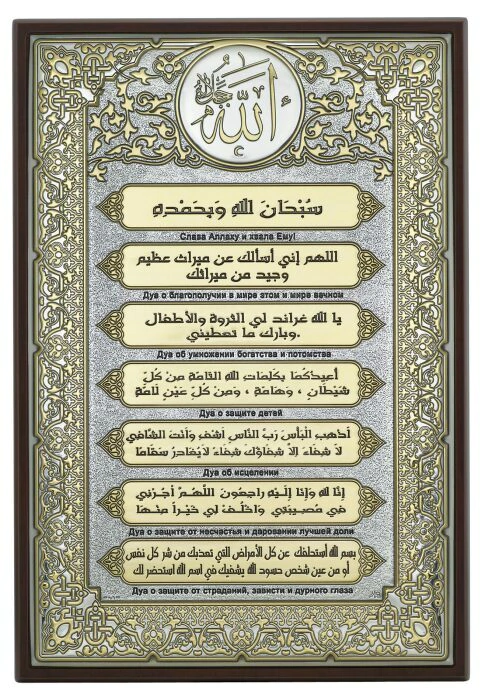 الله
جل جلاله
سُبْحَانَ اللهِ وَبِحَمْدِهِ
Слава Аллаху и хвала Ему!
اللهم إني أسألك عن ميراث عظيم
وجيد من ميراثك
Дуа о благополучии в мире этом и мире вечном
يا الله غراند لي الثروة والأطفال
وبارك ما تعطيني.
Дуа об умножении богатства и потомства
أُعِيذُكُمَا بِكَلِمَاتِ اللهِ التَّامَّةِ مِنْ كُلِّ
شَيْطَانٍ ، وَهَامَّةٍ ، وَمِنْ كُلِّ عَيْنٍ لَامَّةٍ
Дуа о защите детей
أَذْهِبِ الْبَأْسَ رَبَّ النَّاسِ اشْفِ وَأَنْتَ الشَّافِي
لَا شِفَاءَ إِلَّا شِفَاؤُكَ شِفَاءً لَا يُغَادِرُ سَقَمًا
Дуа об исцелении
إِنَّا لِلَّهِ وَإِنَّا إِلَيْهِ رَاجِعُونَ اللَّهُمَّ أْجُرْنِي
فِي مُصِيبَتِي وَأَخْلِفْ لِي خَيْرًا مِنْهَا
Дуа о защите от несчастья и даровании лучшей доли
بسم الله أستحلفك عن كل الأمراض التي تعذبك من شر كل نفس
أو من عين شخص حسود الله يشفيك في اسم الله استحضر لك
Дуа о защите от страданий, зависти и дурного глаза